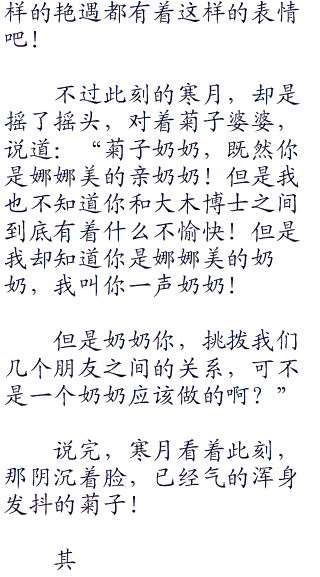 样的艳遇都有着这样的表情
吧！
不过此刻的寒月，却是
摇了摇头，对着菊子婆婆，
说道：“菊子奶奶，既然你
是娜娜美的亲奶奶！但是我
也不知道你和大木博士之间
到底有着什么不愉快！但是
我却知道你是娜娜美的奶
奶，我叫你一声奶奶！
但是奶奶你，挑拨我们
几个朋友之间的关系，可不
是一个奶奶应该做的啊？”
说完，寒月看着此刻，
那阴沉着脸，已经气的浑身
发抖的菊子！
其